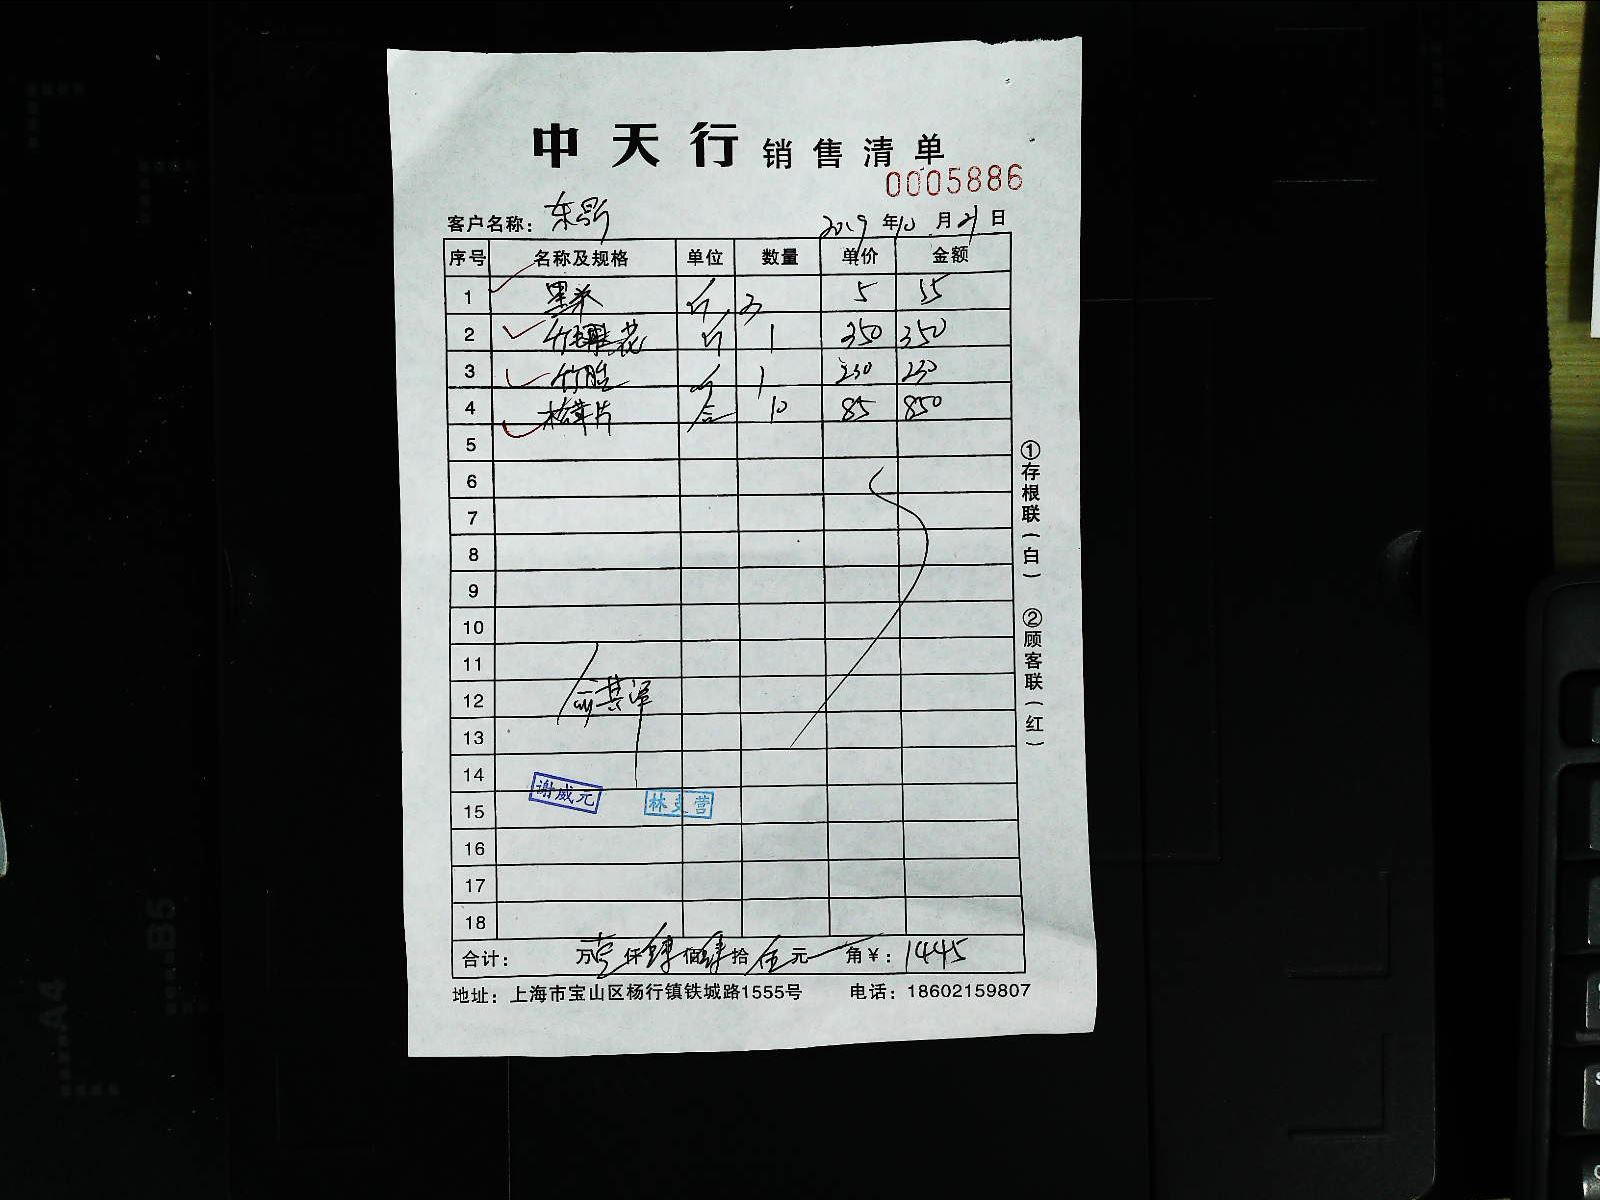 中天行 销售清单
0005886
客户名称：东影 2019年10月21日
序号 名称及规格 单位 数量 单价 金额
1 黑米 斤 3 5 15
2 竹毛雕花 斤 1 350 350
3 竹胜 斤 1 230 230
4 松茸片 合 10 85 850
5
6
7
8
9
10
11
12
13
14
15
16
17
18
谢威元 林 营
合计： 万壹仟肆佰肆拾伍元 角¥：1445
地址：上海市宝山区杨行镇铁城路1555号 电话：18602159807
①存根联（白）
②顾客联（红）
B5
A4